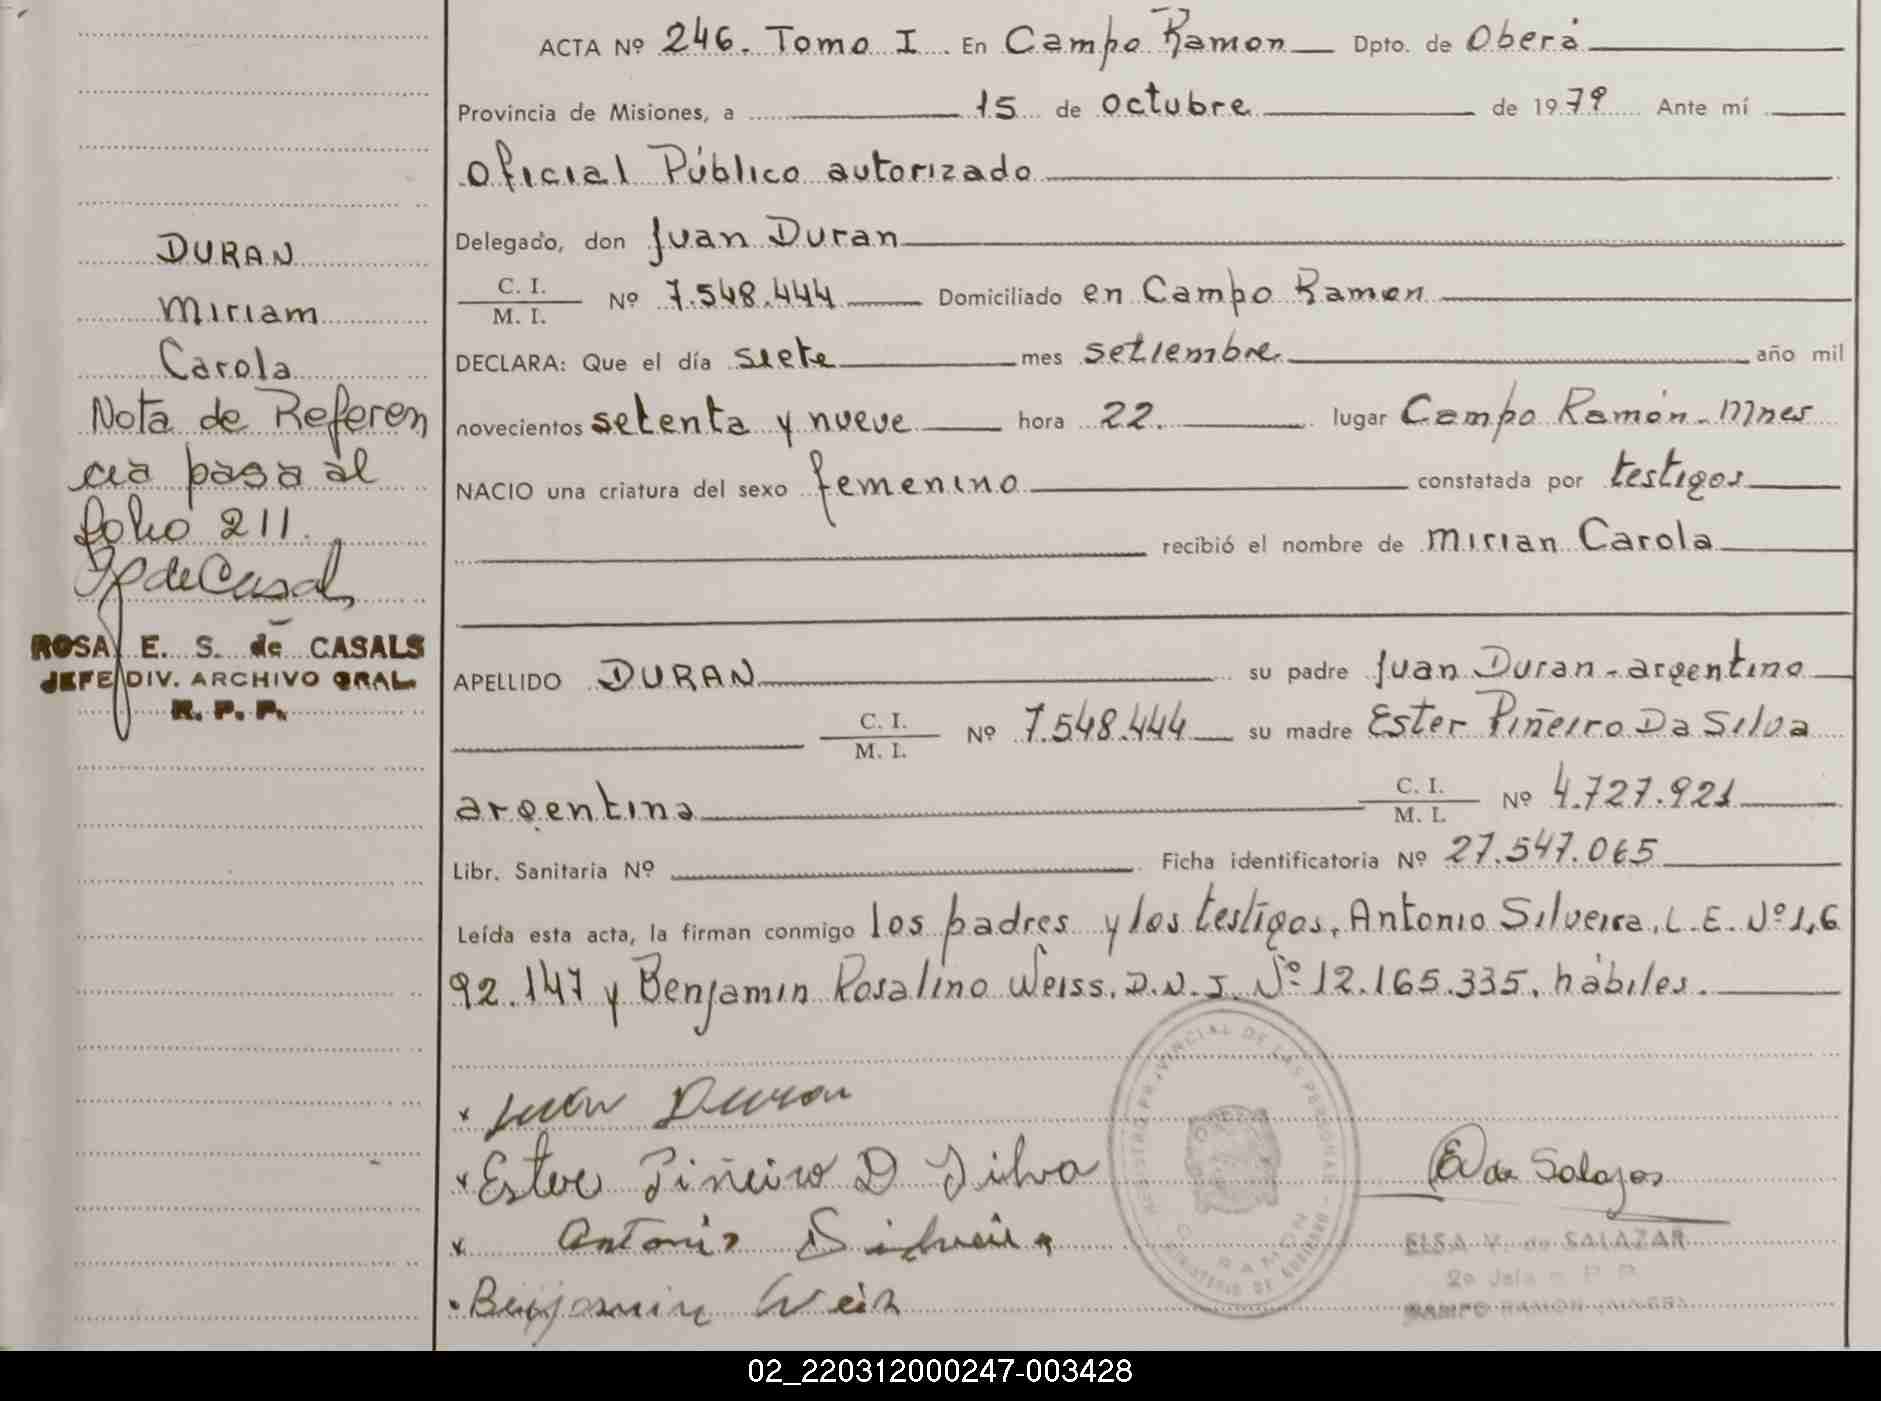 ACTA Nº 246. Tomo I. En Campo Ramon Dpto. de Oberá
Provincia de Misiones, a 15 de octubre de 1979 Ante mí
Oficial Público autorizado
Delegado, don Juan Duran
C. I.
M. I.
Nº 7.548.444 Domiciliado en Campo Ramon
DECLARA: Que el día siete mes setiembre año mil
novecientos setenta y nueve hora 22. lugar Campo Ramón - Mnes
NACIO una criatura del sexo femenino constatada por testigos
recibió el nombre de Mirian Carola
APELLIDO DURAN su padre Juan Duran - argentino
C. I.
M. I.
Nº 7.548.444 su madre Ester Piñeiro Da Silva
argentina
C. I.
M. I.
Nº 4.727.921
Libr. Sanitaria Nº Ficha identificatoria Nº 27.547.065
Leída esta acta, la firman conmigo los padres y los testigos, Antonio Silveira, L.E. Nº 1,6
92.147 y Benjamin Rosalino Weiss. D.N.I. Nº 12.165.335, hábiles.
DURAN
Miriam
Carola
Nota de Referen
cia pasa al
folio 211.
de Casals
ROSA E. S. de CASALS
JEFE DIV. ARCHIVO GRAL.
R. P. P.
Juan Duran
Ester Piñeiro D Silva
Antonio Silveira
Benjamin Weis
REGISTRO PROVINCIAL DE LAS PERSONAS
MINISTERIO DE GOBIERNO
C. RAMON
E V de Salazar
ELSA V. de SALAZAR
2º Jefe R. P. P.
CAMPO RAMON (MNES)
02_220312000247-003428